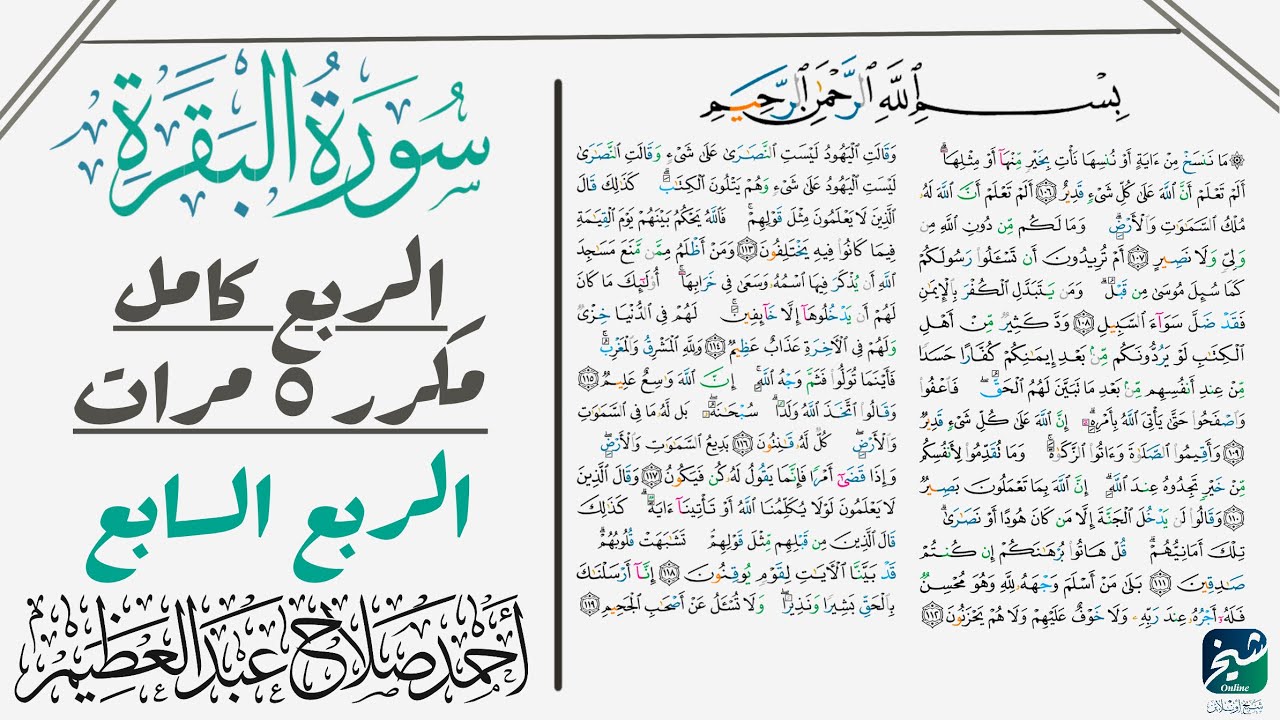 سُورَةُ البَقَرَةِ
الربع كامل
مكرر ٥ مرات
الربع السابع
أحمد صلاح عبد العظيم
بِسْمِ ٱللَّهِ ٱلرَّحْمَٰنِ ٱلرَّحِيمِ
۞ مَا نَنسَخْ مِنْ ءَايَةٍ أَوْ نُنسِهَا نَأْتِ بِخَيْرٍ مِّنْهَآ أَوْ مِثْلِهَآۗ
أَلَمْ تَعْلَمْ أَنَّ ٱللَّهَ عَلَىٰ كُلِّ شَىْءٍ قَدِيرٌ ١٠٦ أَلَمْ تَعْلَمْ أَنَّ ٱللَّهَ لَهُۥ
مُلْكُ ٱلسَّمَٰوَٰتِ وَٱلْأَرْضِۗ وَمَا لَكُم مِّن دُونِ ٱللَّهِ مِن
وَلِىٍّ وَلَا نَصِيرٍ ١٠٧ أَمْ تُرِيدُونَ أَن تَسْـَٔلُوا۟ رَسُولَكُمْ
كَمَا سُئِلَ مُوسَىٰ مِن قَبْلُۗ وَمَن يَتَبَدَّلِ ٱلْكُفْرَ بِٱلْإِيمَٰنِ
فَقَدْ ضَلَّ سَوَآءَ ٱلسَّبِيلِ ١٠٨ وَدَّ كَثِيرٌ مِّنْ أَهْلِ
ٱلْكِتَٰبِ لَوْ يَرُدُّونَكُم مِّنۢ بَعْدِ إِيمَٰنِكُمْ كُفَّارًا حَسَدًا
مِّنْ عِندِ أَنفُسِهِم مِّنۢ بَعْدِ مَا تَبَيَّنَ لَهُمُ ٱلْحَقُّۖ فَٱعْفُوا۟
وَٱصْفَحُوا۟ حَتَّىٰ يَأْتِىَ ٱللَّهُ بِأَمْرِهِۦٓۗ إِنَّ ٱللَّهَ عَلَىٰ كُلِّ شَىْءٍ قَدِيرٌ
١٠٩ وَأَقِيمُوا۟ ٱلصَّلَوٰةَ وَءَاتُوا۟ ٱلزَّكَوٰةَۚ وَمَا تُقَدِّمُوا۟ لِأَنفُسِكُم
مِّنْ خَيْرٍ تَجِدُوهُ عِندَ ٱللَّهِۗ إِنَّ ٱللَّهَ بِمَا تَعْمَلُونَ بَصِيرٌ
١١٠ وَقَالُوا۟ لَن يَدْخُلَ ٱلْجَنَّةَ إِلَّا مَن كَانَ هُودًا أَوْ نَصَٰرَىٰۗ
تِلْكَ أَمَانِيُّهُمْۗ قُلْ هَاتُوا۟ بُرْهَٰنَكُمْ إِن كُنتُمْ
صَٰدِقِينَ ١١١ بَلَىٰ مَنْ أَسْلَمَ وَجْهَهُۥ لِلَّهِ وَهُوَ مُحْسِنٌ
فَلَهُۥٓ أَجْرُهُۥ عِندَ رَبِّهِۦ وَلَا خَوْفٌ عَلَيْهِمْ وَلَا هُمْ يَحْزَنُونَ ١١٢
وَقَالَتِ ٱلْيَهُودُ لَيْسَتِ ٱلنَّصَٰرَىٰ عَلَىٰ شَىْءٍ وَقَالَتِ ٱلنَّصَٰرَىٰ
لَيْسَتِ ٱلْيَهُودُ عَلَىٰ شَىْءٍ وَهُمْ يَتْلُونَ ٱلْكِتَٰبَۗ كَذَٰلِكَ قَالَ
ٱلَّذِينَ لَا يَعْلَمُونَ مِثْلَ قَوْلِهِمْۚ فَٱللَّهُ يَحْكُمُ بَيْنَهُمْ يَوْمَ ٱلْقِيَٰمَةِ
فِيمَا كَانُوا۟ فِيهِ يَخْتَلِفُونَ ١١٣ وَمَنْ أَظْلَمُ مِمَّن مَّنَعَ مَسَٰجِدَ
ٱللَّهِ أَن يُذْكَرَ فِيهَا ٱسْمُهُۥ وَسَعَىٰ فِى خَرَابِهَآۚ أُو۟لَٰٓئِكَ مَا كَانَ
لَهُمْ أَن يَدْخُلُوهَآ إِلَّا خَآئِفِينَۚ لَهُمْ فِى ٱلدُّنْيَا خِزْىٌ
وَلَهُمْ فِى ٱلْءَاخِرَةِ عَذَابٌ عَظِيمٌ ١١٤ وَلِلَّهِ ٱلْمَشْرِقُ وَٱلْمَغْرِبُۚ
فَأَيْنَمَا تُوَلُّوا۟ فَثَمَّ وَجْهُ ٱللَّهِۚ إِنَّ ٱللَّهَ وَٰسِعٌ عَلِيمٌ ١١٥
وَقَالُوا۟ ٱتَّخَذَ ٱللَّهُ وَلَدًاۗ سُبْحَٰنَهُۥۖ بَل لَّهُۥ مَا فِى ٱلسَّمَٰوَٰتِ
وَٱلْأَرْضِۖ كُلٌّ لَّهُۥ قَٰنِتُونَ ١١٦ بَدِيعُ ٱلسَّمَٰوَٰتِ وَٱلْأَرْضِۖ
وَإِذَا قَضَىٰٓ أَمْرًا فَإِنَّمَا يَقُولُ لَهُۥ كُن فَيَكُونُ ١١٧ وَقَالَ ٱلَّذِينَ
لَا يَعْلَمُونَ لَوْلَا يُكَلِّمُنَا ٱللَّهُ أَوْ تَأْتِينَآ ءَايَةٌۗ كَذَٰلِكَ
قَالَ ٱلَّذِينَ مِن قَبْلِهِم مِّثْلَ قَوْلِهِمْۘ تَشَٰبَهَتْ قُلُوبُهُمْۗ
قَدْ بَيَّنَّا ٱلْءَايَٰتِ لِقَوْمٍ يُوقِنُونَ ١١٨ إِنَّآ أَرْسَلْنَٰكَ
بِٱلْحَقِّ بَشِيرًا وَنَذِيرًاۖ وَلَا تُسْـَٔلُ عَنْ أَصْحَٰبِ ٱلْجَحِيمِ ١١٩
شيخ
Online
شيخ اونلاين